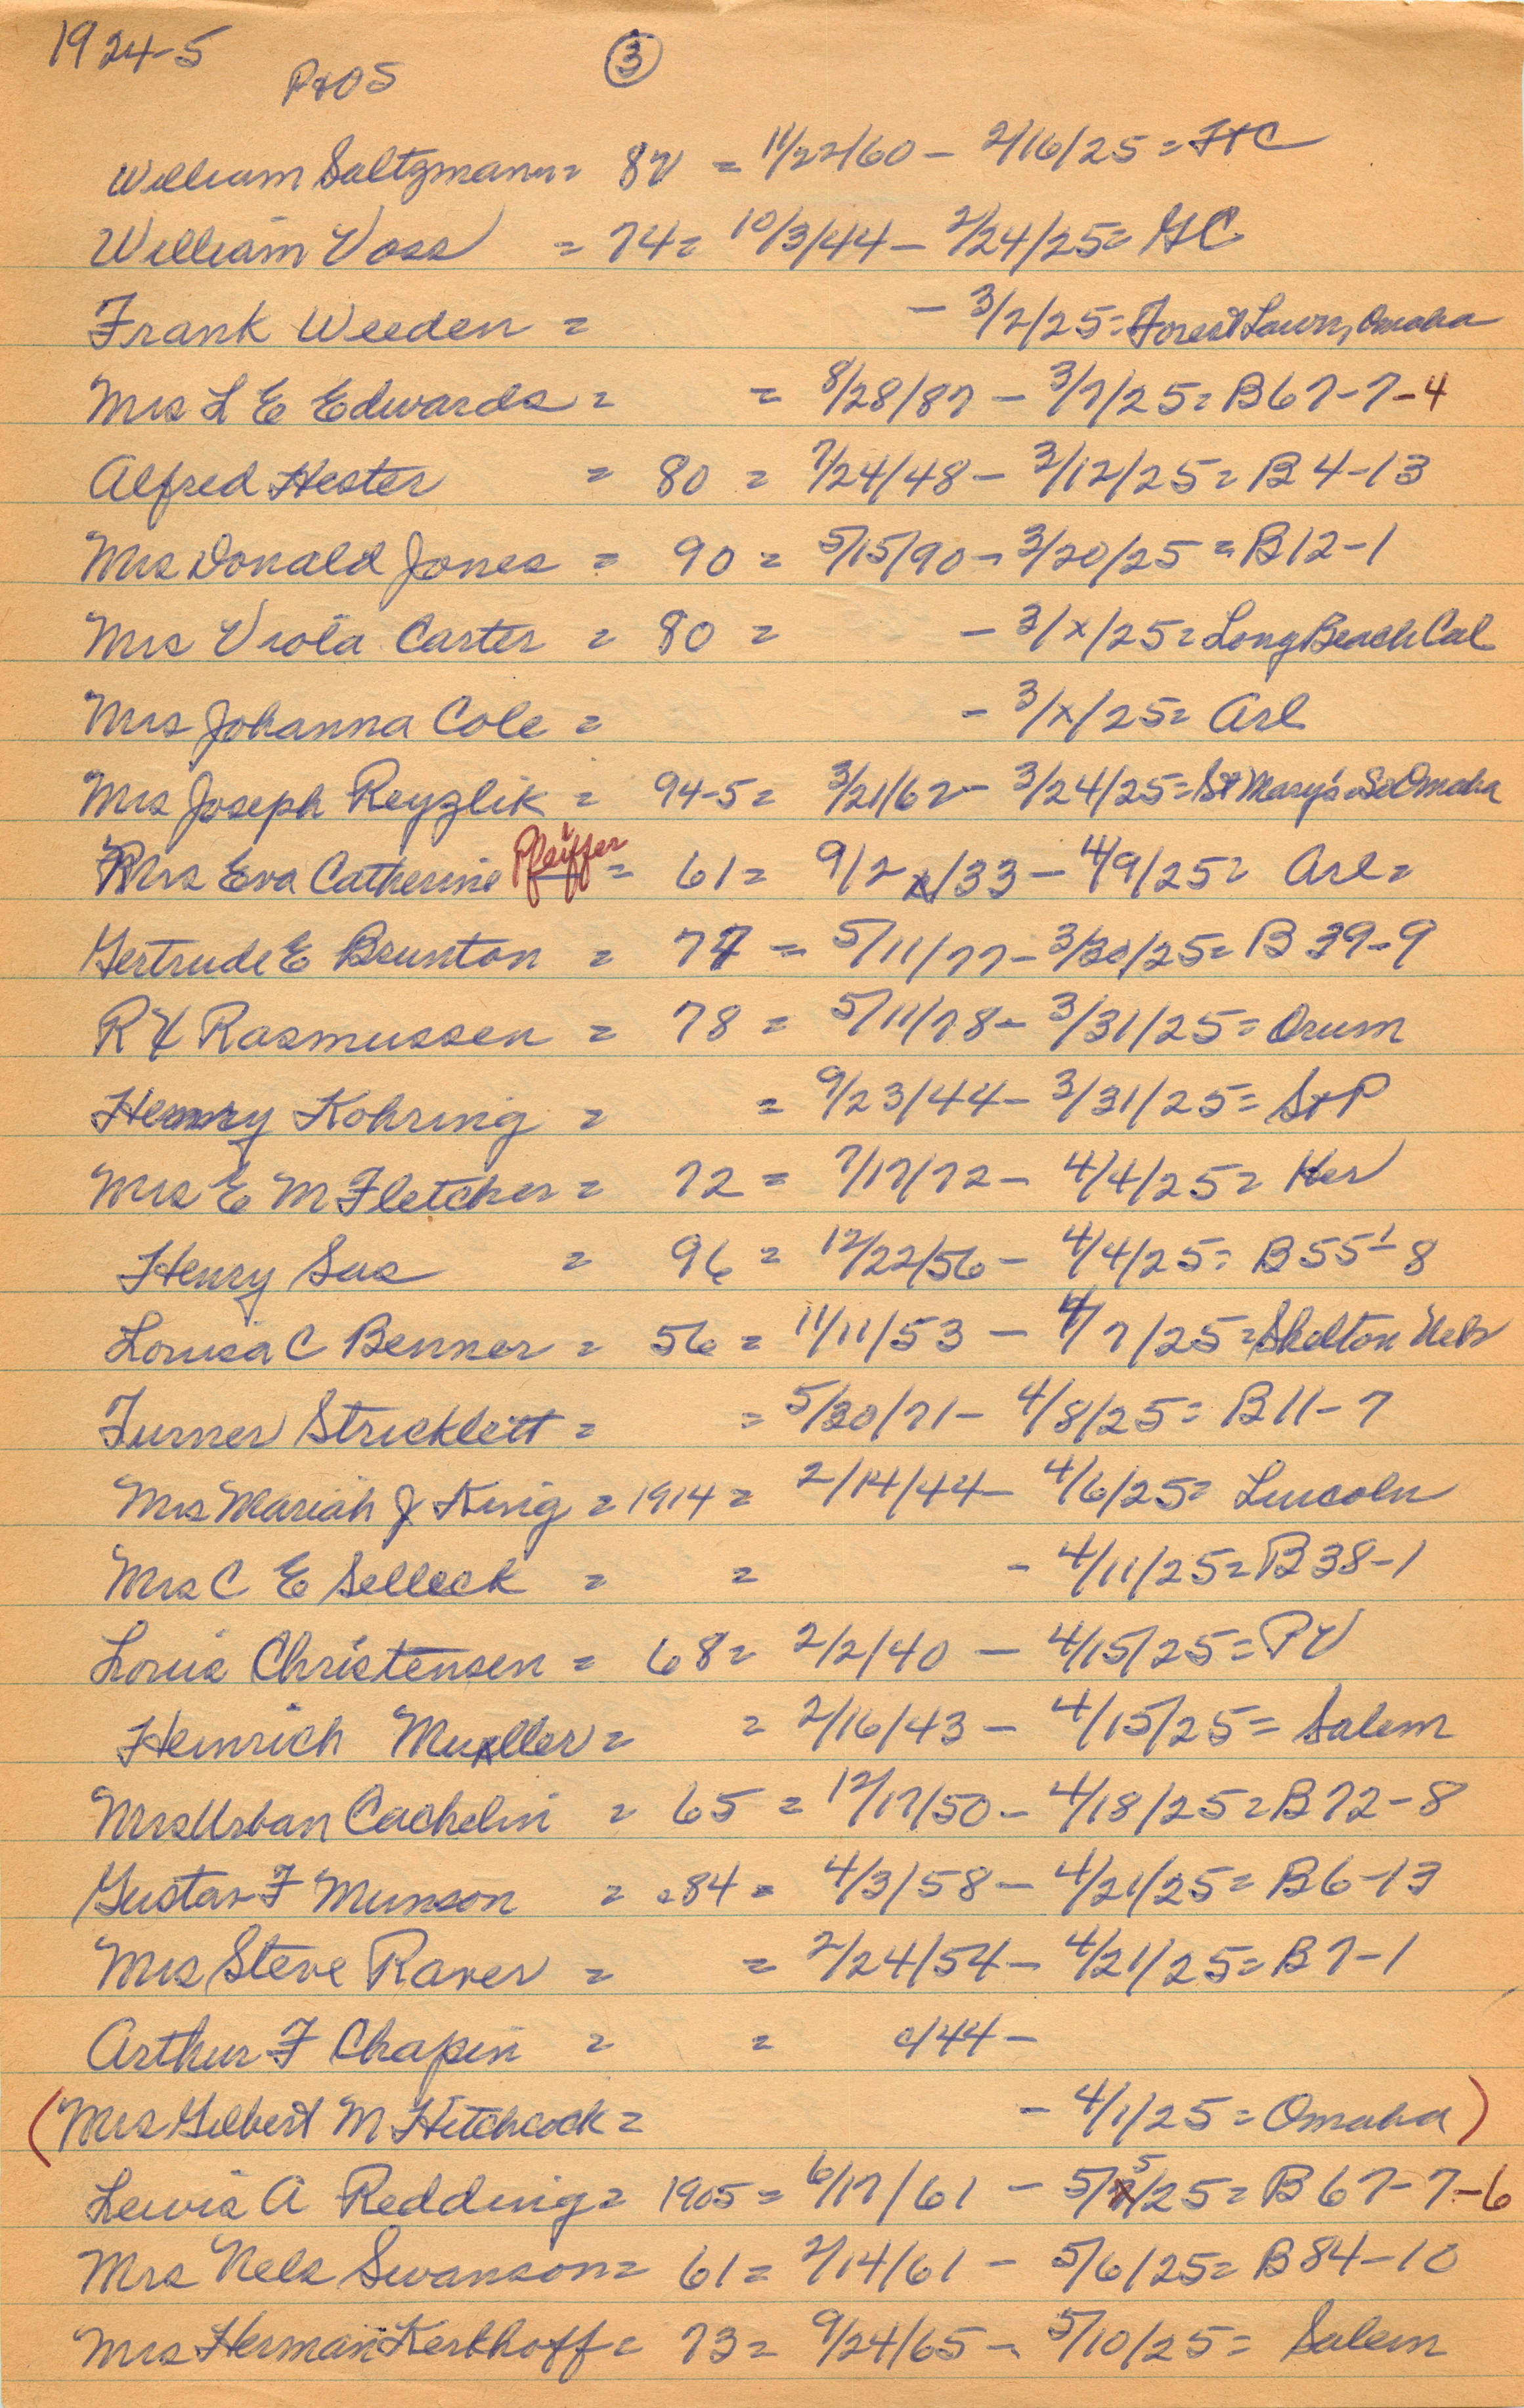 1924-5
③
William Saltzmann = 82 = 11/22/60 - 2/16/25 = FtC
William Voss = 74 = 10/3/44 - 2/24/25 = GC
Frank Weeden = - 3/2/25 = Forest Lawn, Omaha
Mrs L E Edwards = = 8/28/87 - 3/7/25 = B67-7-4
Alfred Hester = 80 = 7/24/48 - 3/12/25 = B4-13
Mrs Donald Jones = 90 = 5/15/90 - 3/20/25 = B12-1
Mrs Viola Carter = 80 = - 3/x/25 = Long Beach Cal
Mrs Johanna Cole = - 3/x/25 = Arl
Mrs Joseph Reyzlik = 94-5 = 3/21/62 - 3/24/25 = St Mary's So Omaha
Mrs Eva Catherine Pfeiffer = 61 = 9/2x/33 - 4/9/25 = Arl =
Gertrude E Brunton = 77 = 5/11/77 - 3/30/25 = B39-9
R H Rasmussen = 78 = 5/11/78 - 3/31/25 = Orum
Henry Kohring = = 9/23/44 - 3/31/25 = StP
Mrs E M Fletcher = 72 = 7/17/72 - 4/4/25 = Her
Henry Sas = 96 = 12/22/56 - 4/4/25 = B55-8
Louisa C Benner = 56 = 11/11/53 - 4/7/25 = Shelton Neb
Turner Stricklett = = 5/30/71 - 4/8/25 = B11-7
Mrs Mariah J King = 1914 = 2/14/44 - 4/6/25 = Lincoln
Mrs C E Selleck = = - 4/11/25 = B38-1
Louis Christensen = 68 = 2/2/40 - 4/15/25 = PV
Heinrich Mueller = = 2/16/43 - 4/15/25 = Salem
Mrs Urban Cachelin = 65 = 12/17/50 - 4/18/25 = B72-8
Gustav F Munson = 84 = 4/3/58 - 4/21/25 = B6-13
Mrs Steve Raver = = 2/24/54 - 4/21/25 = B7-1
Arthur F Chapin = = c/44 -
(Mrs Gilbert M Hitchcock = - 4/1/25 = Omaha)
Lewis A Redding = 1905 = 6/17/61 - 5/5/25 = B67-7-6
Mrs Nels Swanson = 61 = 2/14/61 - 5/6/25 = B84-10
Mrs Herman Kerkhoff = 73 = 9/24/65 - 5/10/25 = Salem